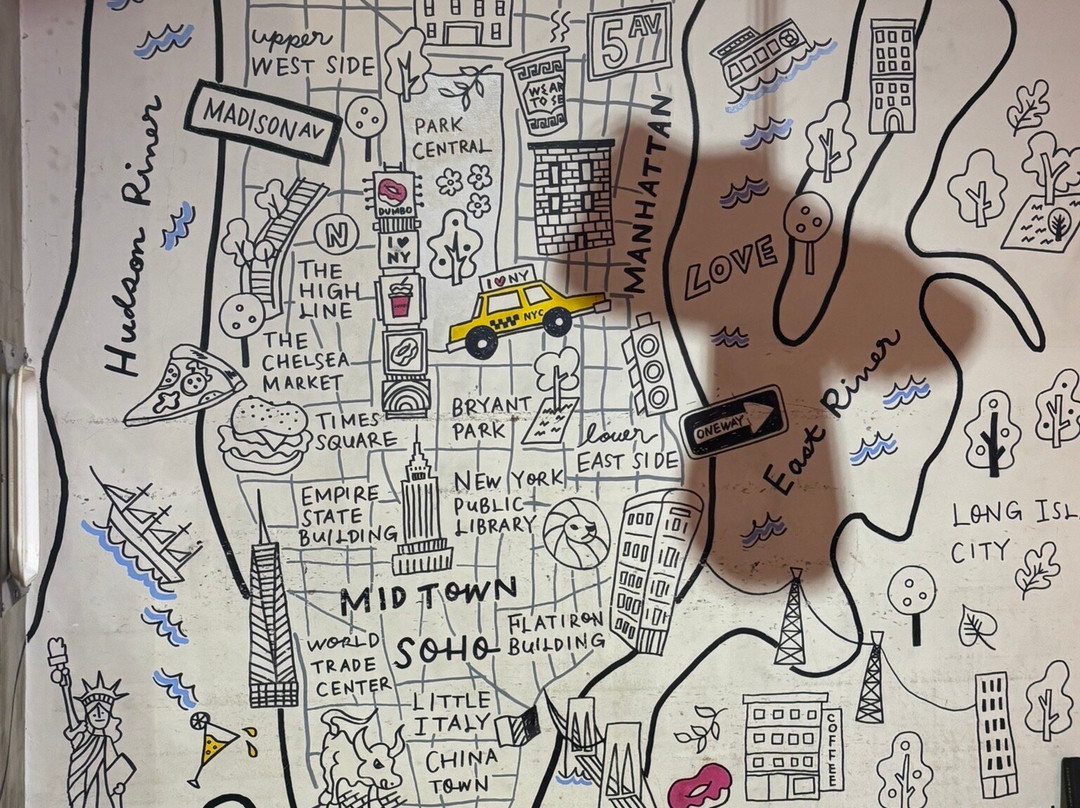 upper
WEST SIDE
5 AV
MADISON AV
Hudson River
PARK
CENTRAL
WE AR
TO SE
MANHATTAN
DUMBO
N
I ♥
NY
THE
HIGH
LINE
I ♥ NY
NYC
LOVE
THE
CHELSEA
MARKET
East River
TIMES
SQUARE
BRYANT
PARK
lower
EAST SIDE
ONEWAY
EMPIRE
STATE
BUILDING
NEW YORK
PUBLIC
LIBRARY
LONG ISL
CITY
MIDTOWN
SOHO
FLATIRON
BUILDING
WORLD
TRADE
CENTER
LITTLE
ITALY
CHINA
TOWN
COFFEE